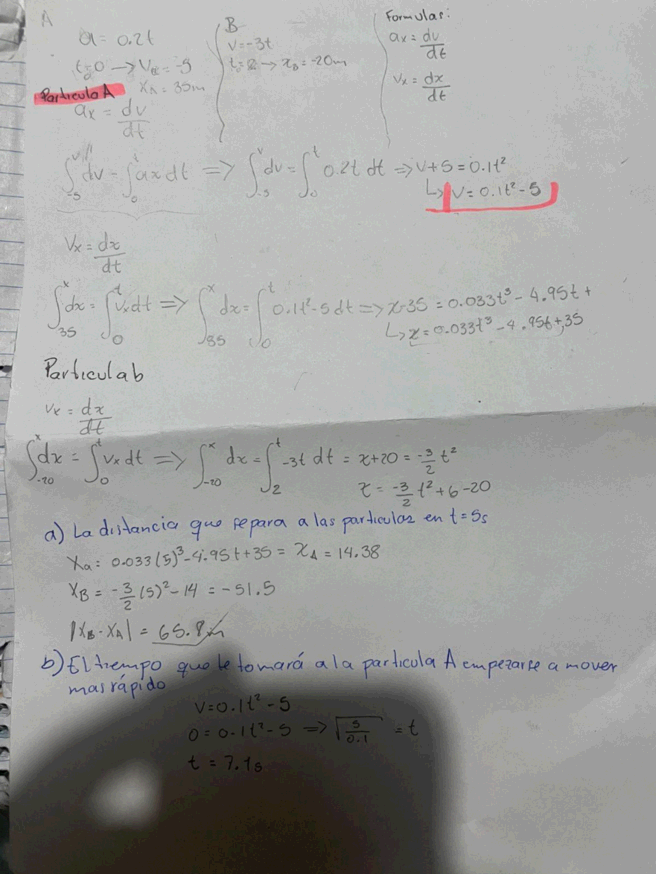 A
a = 0.2t
t=0 → V = -5
X_A = 35m
B
v = -3t
t = 2 → x_B = -20m
Formulas:
ax = dv/dt
vx = dx/dt
Particula A
ax = dv/dt
∫_{-5}^{v} dv = ∫_{0}^{t} ax dt => ∫_{-5}^{v} dv = ∫_{0}^{t} 0.2t dt => v+5 = 0.1t²
↳ v = 0.1t² - 5
Vx = dx/dt
∫_{35}^{x} dx = ∫_{0}^{t} Vx dt => ∫_{35}^{x} dx = ∫_{0}^{t} 0.1t² - 5 dt => x-35 = 0.033t³ - 4.95t +
↳ x = 0.033t³ - 4.95t + 35
Particula b
vx = dx/dt
∫_{-20}^{x} dx = ∫_{0}^{t} vx dt => ∫_{-20}^{x} dx = ∫_{2}^{t} -3t dt = x+20 = -3/2 t²
x = -3/2 t² + 6 - 20
a) La distancia que separa a las particulas en t = 5s
Xa = 0.033(5)³ - 4.95t + 35 = x_A = 14.38
X_B = -3/2 (5)² - 14 = -51.5
|X_B - X_A| = 65.8m
b) El tiempo que le tomará a la particula A empezarse a mover
mas rápido
v = 0.1t² - 5
0 = 0.1t² - 5 => √(5/0.1) = t
t = 7.1s